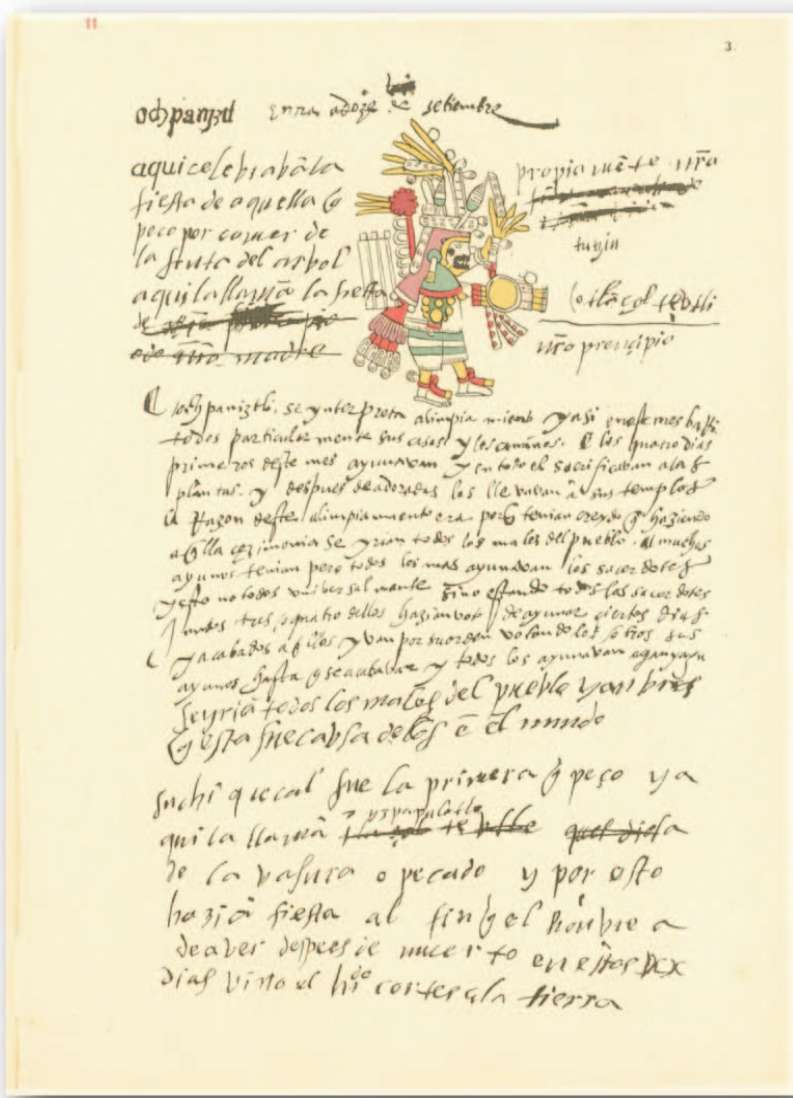 11
3
ochpaniztl entra a doze de setiembre
aqui celebrabā la
fiesta de aquella q̄
peco por comer de
la fruta del arbol
aqui la llamā la fiesta
de
o de nr̄a madre
propia mēte nr̄a
tuzin
nr̄o prencipio
ochpaniztli. se ynterpreta alimpiamiento y asi en este mes
todos particularmente sus casas y los caminos. los quatro dias
primeros deste mes ayunavan y en todo el sacrificavan a las
plantas. y despues de adoradas las llevavan a sus templos
la Razon deste alimpiamiento era porq̄ tenian creydo q̄ haziendo
aq̄lla cerimonia se yrian todos los males del pueblo. muchos
ayunos tenian pero todos los mas ayunavan los sacerdotes
y esto no todos universalmente sino estando todos los sacerdotes
juntos tres o quatro dellos hazian voto de ayunar ciertos dias
y acabados aq̄llos yvan por su orden los otros sus
ayunos hasta q̄ se acababan y todos los ayunavan
se yriā todos los males del pueblo
q̄ esta fue cabsa dellos ē el mundo
suchiquecal fue la primera q̄ peço y a
yspapalotle
qui la llamā
de la vasura o pecado y por esto
haziā fiesta al fin q̄ el honbre a
de aver despues de muerto en estos
dias vino el hr̄do cortes a la tierra